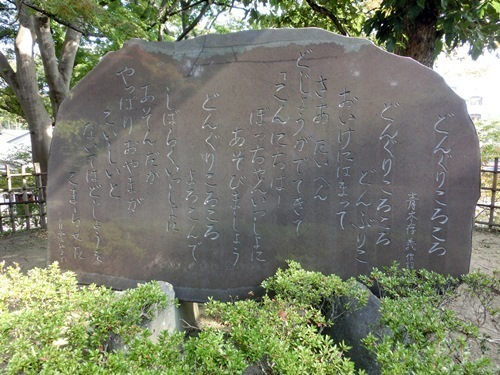 どんぐりころころ
青木存義作詞
どんぐりころころ
どんぶりこ
おいけにはまって
さあ たいへん
どじょうがでてきて
「こんにちは」
ぼっちゃんいっしょに
あそびましょう
どんぐりころころ
よろこんで
しばらくいっしょに
あそんだが
やっぱりおやまが
こいしいと
ないてはどじょうを
こまらせた